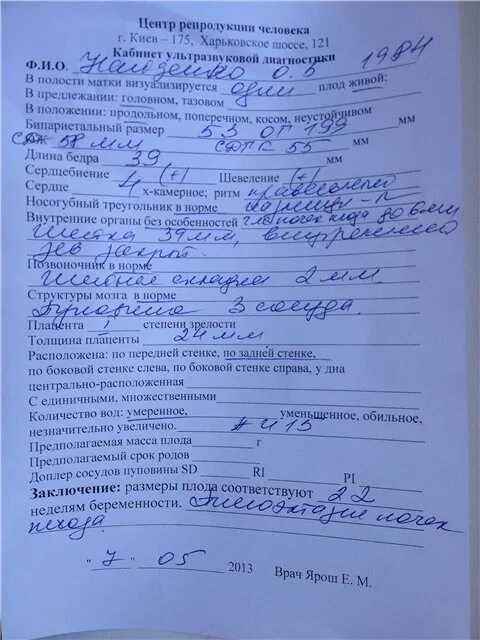 Центр репродукции человека
г. Киев – 175, Харьковское шоссе, 121
Кабинет ультразвуковой диагностики
Ф.И.О. О.В 1984
В полости матки визуализируется один плод живой:
В предлежании: головном, тазовом
В положении: продольном, поперечном, косом, неустойчивом
Бипариетальный размер 53 ОГ 199 мм
СДЖ 58 мм СДГК 55 мм
Длина бедра 39 мм
Сердцебиение (+) Шевеление (+)
Сердце 4 х-камерное; ритм
Носогубный треугольник в норме
Внутренние органы без особенностей почек плода до 6мм
Шейка 39 мм, внутренний
зев закрыт.
Позвоночник в норме
Шейная складка 2 мм
Структуры мозга в норме
Пуповина 3 сосуда.
Плацента 1 степени зрелости
Толщина плаценты 24 мм
Расположена: по передней стенке, по задней стенке,
по боковой стенке слева, по боковой стенке справа, у дна
центрально-расположенная
С единичными, множественными
Количество вод: умеренное, уменьшенное, обильное,
незначительно увеличено. 415
Предполагаемая масса плода г
Предполагаемый срок родов
Доплер сосудов пуповины SD RI PI
Заключение: размеры плода соответствуют 22
неделям беременности. Пиелоэктазия почек
плода.
" 7 " 05 2013 Врач Ярош Е. М.